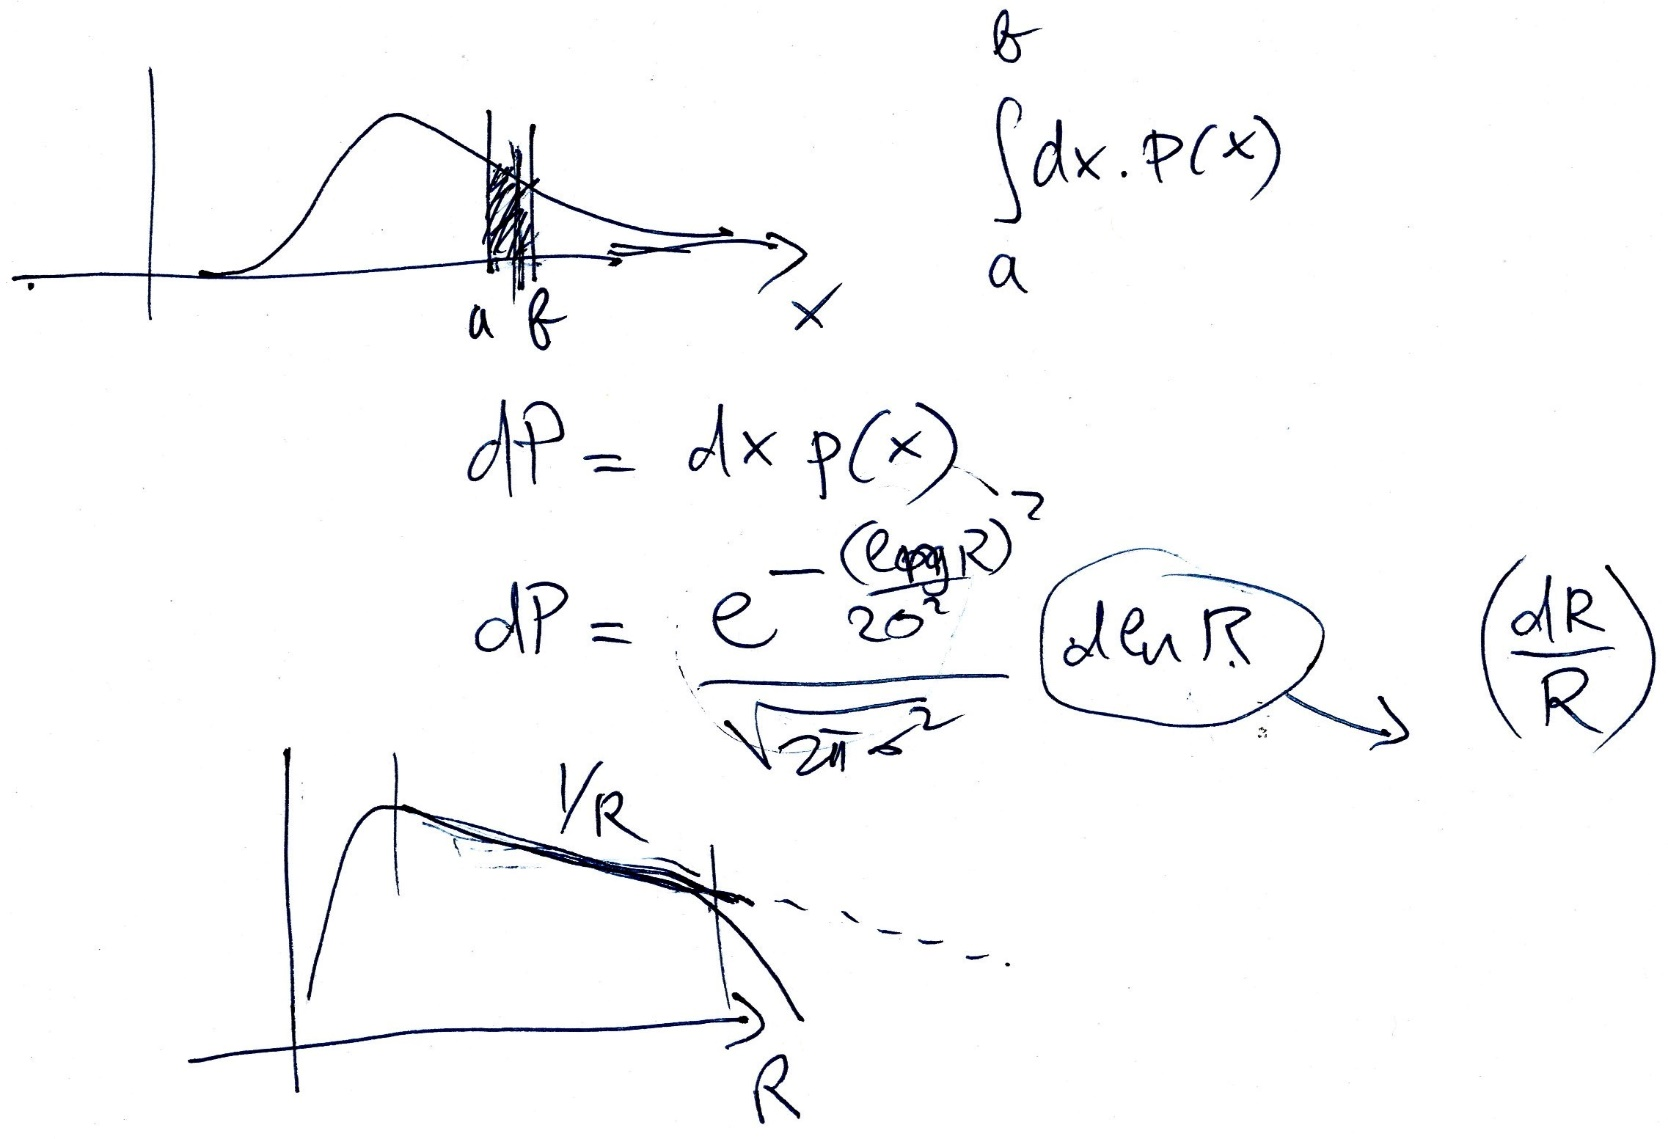 b
∫ dx. P(x)
a
a b
x
dP = dx p(x)
dP = e^{-(log R)^2 / 2σ^2} / √(2πσ^2) d ln R → (dR/R)
1/R
R